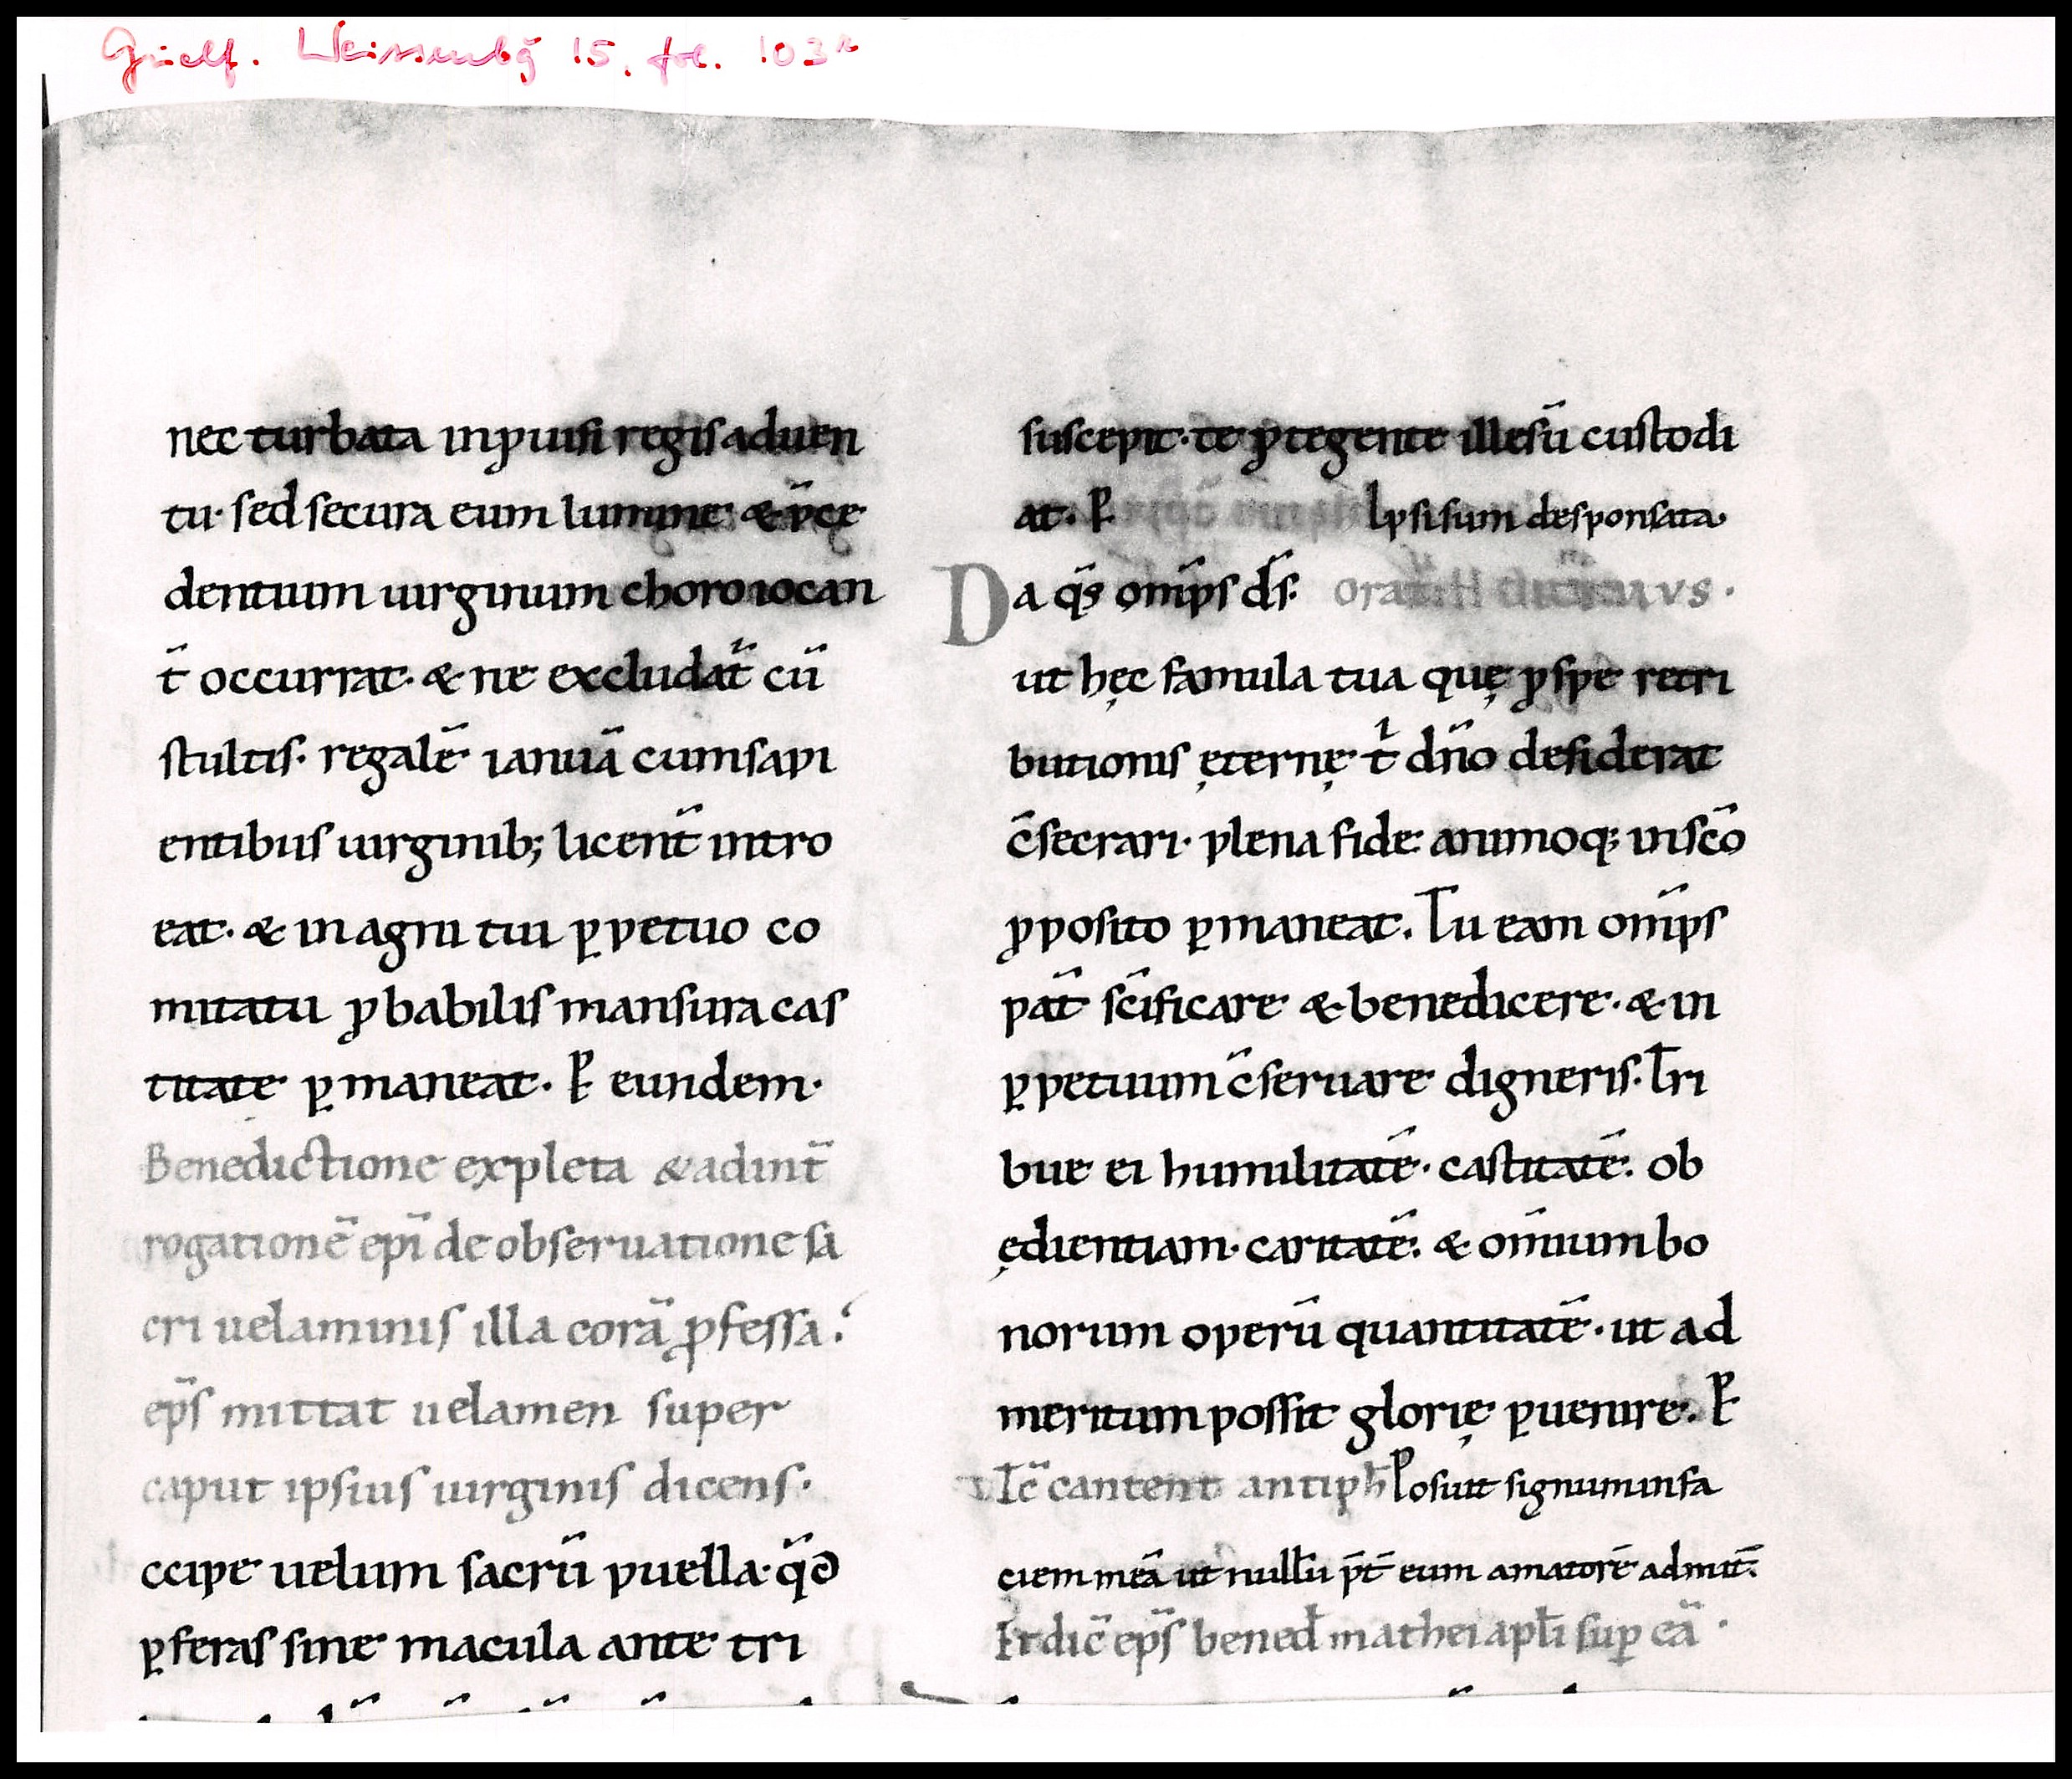 Guelf. Weissenbg 15. fol. 103r
nec turbata inꝓuisi regis aduen
tu· sed secura eum lumine· & p̄cę
dentium uirginum choro iocan
t̄ occurrat· & ne excludat̄ cū
stultis· regalē ianuā cum sapi
entibus uirginib; licent̄ intro
eat· & in agni tui ꝑpetuo co
mitatu ꝓbabilis mansura cas
titate ꝑmaneat. P̄ eundem·
Benedictione expleta & ad int̄
rogationē epī de obseruatione sa
cri uelaminis illa corā ꝓfessa·
ep̄s mittat uelamen super
caput ipsius uirginis dicens·
ccipe uelum sacrū puella· q̄ð
ꝑferas sine macula ante tri
suscepit· te ꝓtegente illesū custodi
at. P̄ Ipsi sum desponsata·
Da q̄s om̄ps d̄s·
ut hęc famula tua quę ꝓ spe retri
butionis ęternę t̄ dn̄o desiderat
c̄secrari· plena fide animoq; in sc̄o
ꝓposito ꝑmaneat. Tu eam om̄ps
pat̄ sc̄ificare & benedicere· & in
ꝑpetuum c̄seruare digneris. Tri
bue ei humilitatē· castitatē· ob
ędientiam· caritatē· & om̄ium bo
norum operū quantitatē· ut ad
meritum possit glorię ꝑuenire. P̄
Tc̄ cantent antiph̄ Posuit signum in fa
ciem meā ut nullū p̄t̄ eum amatorē admit̄·
Et dic̄ ep̄s bened̄ mathei apl̄i suꝑ eā·